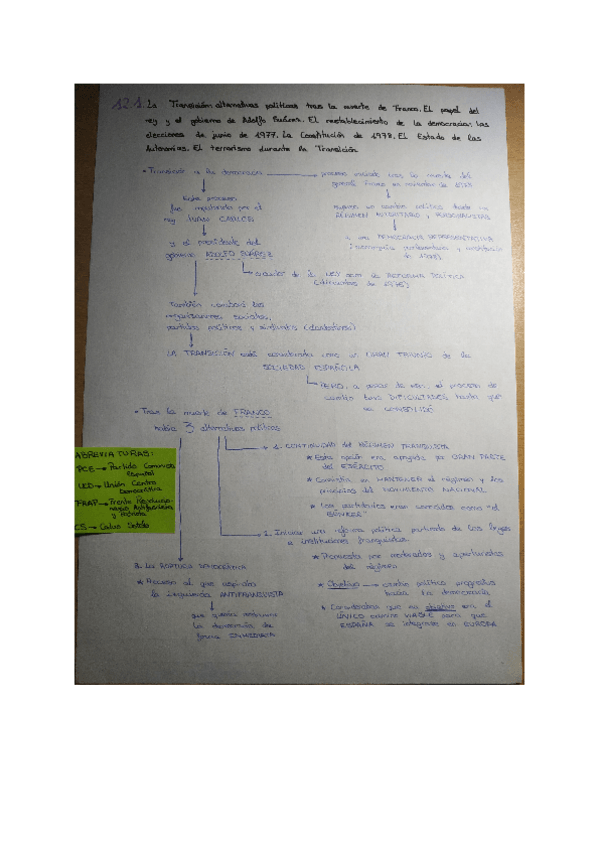 12.1. La Transición: alternativas políticas tras la muerte de Franco. El papel del
rey y el gobierno de Adolfo Suárez. El restablecimiento de la democracia: las
elecciones de junio de 1977. La Constitución de 1978. El Estado de las
Autonomías. El terrorismo durante la Transición
Transición a la democracia
proceso iniciado tras la muerte del
general Franco en noviembre de 1975
Este proceso
fue impulsado por el
rey JUAN CARLOS
supone un cambio político desde un
RÉGIMEN AUTORITARIO y PERSONALISTA
y el presidente del
gobierno ADOLFO SUÁREZ
a una DEMOCRACIA REPRESENTATIVA
creador de la LEY para la REFORMA POLÍTICA
También
organizaciones sociales,
partidos políticos y sindicatos (clandestinos)
LA TRANSICIÓN está considerada como un GRAN TRIUNFO de la
SOCIEDAD ESPAÑOLA
PERO, a pesar de eso, el proceso de
cambio tuvo DIFICULTADES hasta que
se consolidó
Tras la muerte de FRANCO
había 3 alternativas políticas
1. CONTINUIDAD del RÉGIMEN FRANQUISTA
* Esta opción era apoyada por GRAN PARTE
del EJÉRCITO
* Consistía en MANTENER el régimen y los
principios del MOVIMIENTO NACIONAL
* Los partidarios eran conocidos como "el
BÚNKER"
ABREVIATURAS:
PCE → Partido Comunista
Español
UCD → Unión Centro
Democrática
FRAP → Frente Revolucio-
nario Antifascista
y Patriota
CS → Calvo Sotelo
2. Iniciar una reforma política partiendo de las leyes
e instituciones franquistas.
* Propuesta por moderados y aperturistas
del régimen
* Objetivo → cambio político progresivo
hacia la democracia
* Consideraban que su objetivo era el
ÚNICO camino VIABLE para que
ESPAÑA se integrase en EUROPA
3. LA RUPTURA DEMOCRÁTICA
* Proceso al que aspiraba
la izquierda ANTIFRANQUISTA
que quería restaurar
la democracia de
forma INMEDIATA